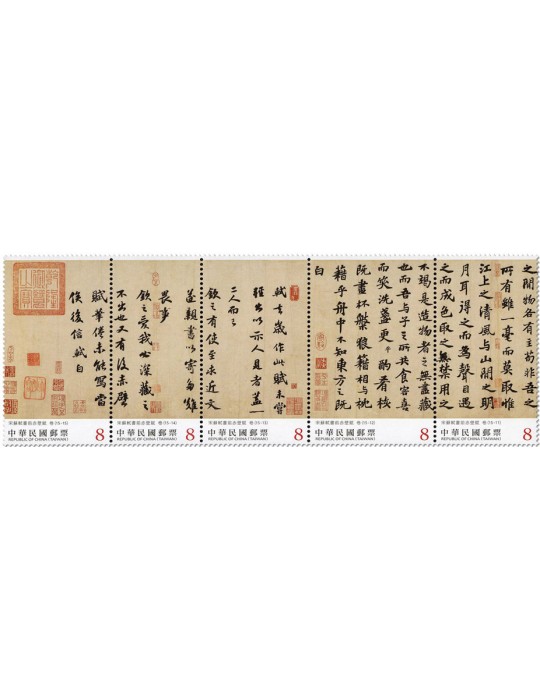 之間物各有主苟非吾之
所有雖一毫而莫取惟
江上之清風与山間之明
月耳得之而為聲目遇
之而成色取之無禁用之
不竭是造物者之無盡藏
也而吾与子之所共食客喜
而笑洗盞更酌肴核
既盡杯盤狼籍相与枕
藉乎舟中不知東方之既
白
軾去歲作此賦未嘗
輕出以示人見者盖一
二人而已
欽之有使至求近文
遂親書以寄多難
畏事
欽之愛我必深藏之
不出也又有後赤壁
賦筆倦未能寫當
俟後信軾白
宋蘇軾書前赤壁賦 卷(15-15)
中華民國郵票 8
REPUBLIC OF CHINA (TAIWAN)
宋蘇軾書前赤壁賦 卷(15-14)
中華民國郵票 8
REPUBLIC OF CHINA (TAIWAN)
宋蘇軾書前赤壁賦 卷(15-13)
中華民國郵票 8
REPUBLIC OF CHINA (TAIWAN)
宋蘇軾書前赤壁賦 卷(15-12)
中華民國郵票 8
REPUBLIC OF CHINA (TAIWAN)
宋蘇軾書前赤壁賦 卷(15-11)
中華民國郵票 8
REPUBLIC OF CHINA (TAIWAN)